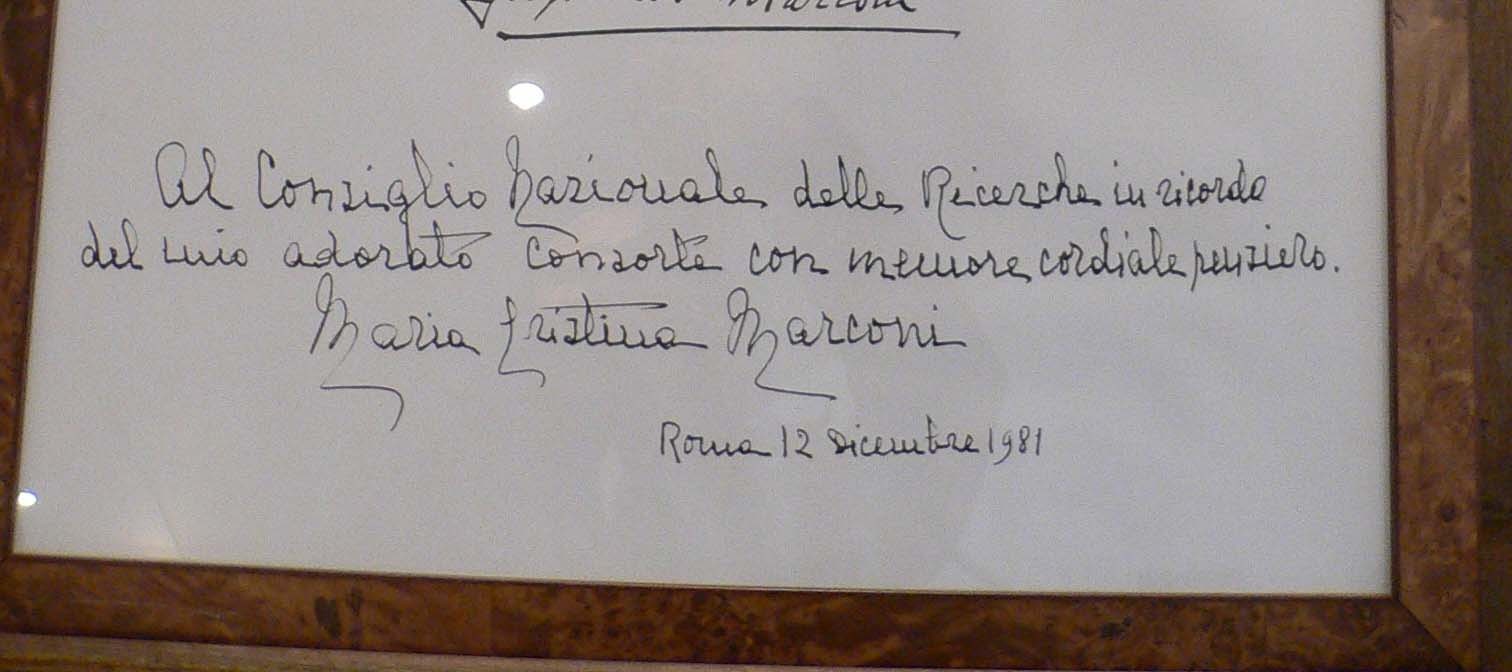 Marconi
Al Consiglio Nazionale delle Ricerche in ricordo
del mio adorato consorte con memore cordiale pensiero.
Maria Cristina Marconi
Roma 12 Dicembre 1981